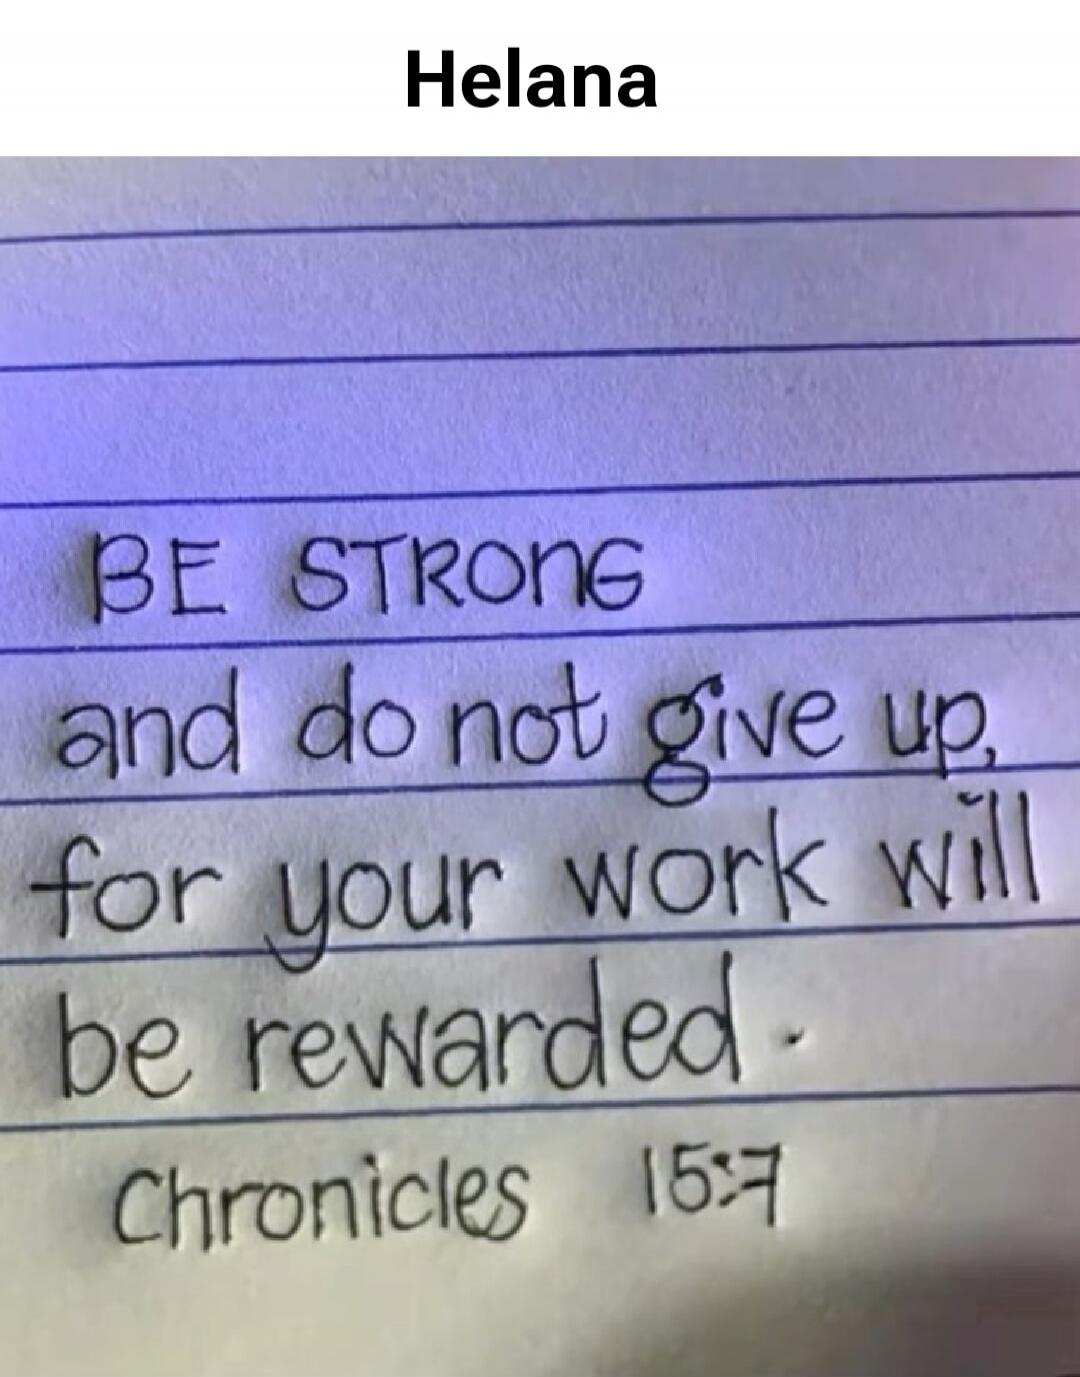 Helana
BE STRONG
and do not give up,
for your work will
be rewarded.
Chronicles 15:7